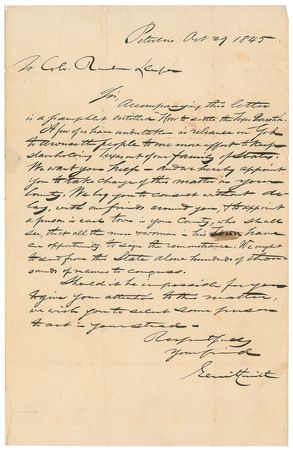 Peterboro Oct 29 1845
To Col. Reuben Sleeper
Sir,
Accompanying this letter
is a pamphlet entitled "How to settle the Texas Question".
A few of us have undertaken in reliance on God
to arouse the people to one more effort to keep
slaveholding Texas out of our family of States.
We want your help – and we hereby appoint
you to take charge of this matter in your
County. We beg you to consult without de-
lay, with our friends around you, & to appoint
a person in each town in your County, who shall
see, that all the men & women in this town have
an opportunity to sign the remonstrance. We ought
to send from this State alone hundreds of thou-
sands of names to congress.
Should it be impossible for you
to give your attention to this matter,
we wish you to select some person
to act in your stead –
Respectfully
Your friend
Gerrit Smith